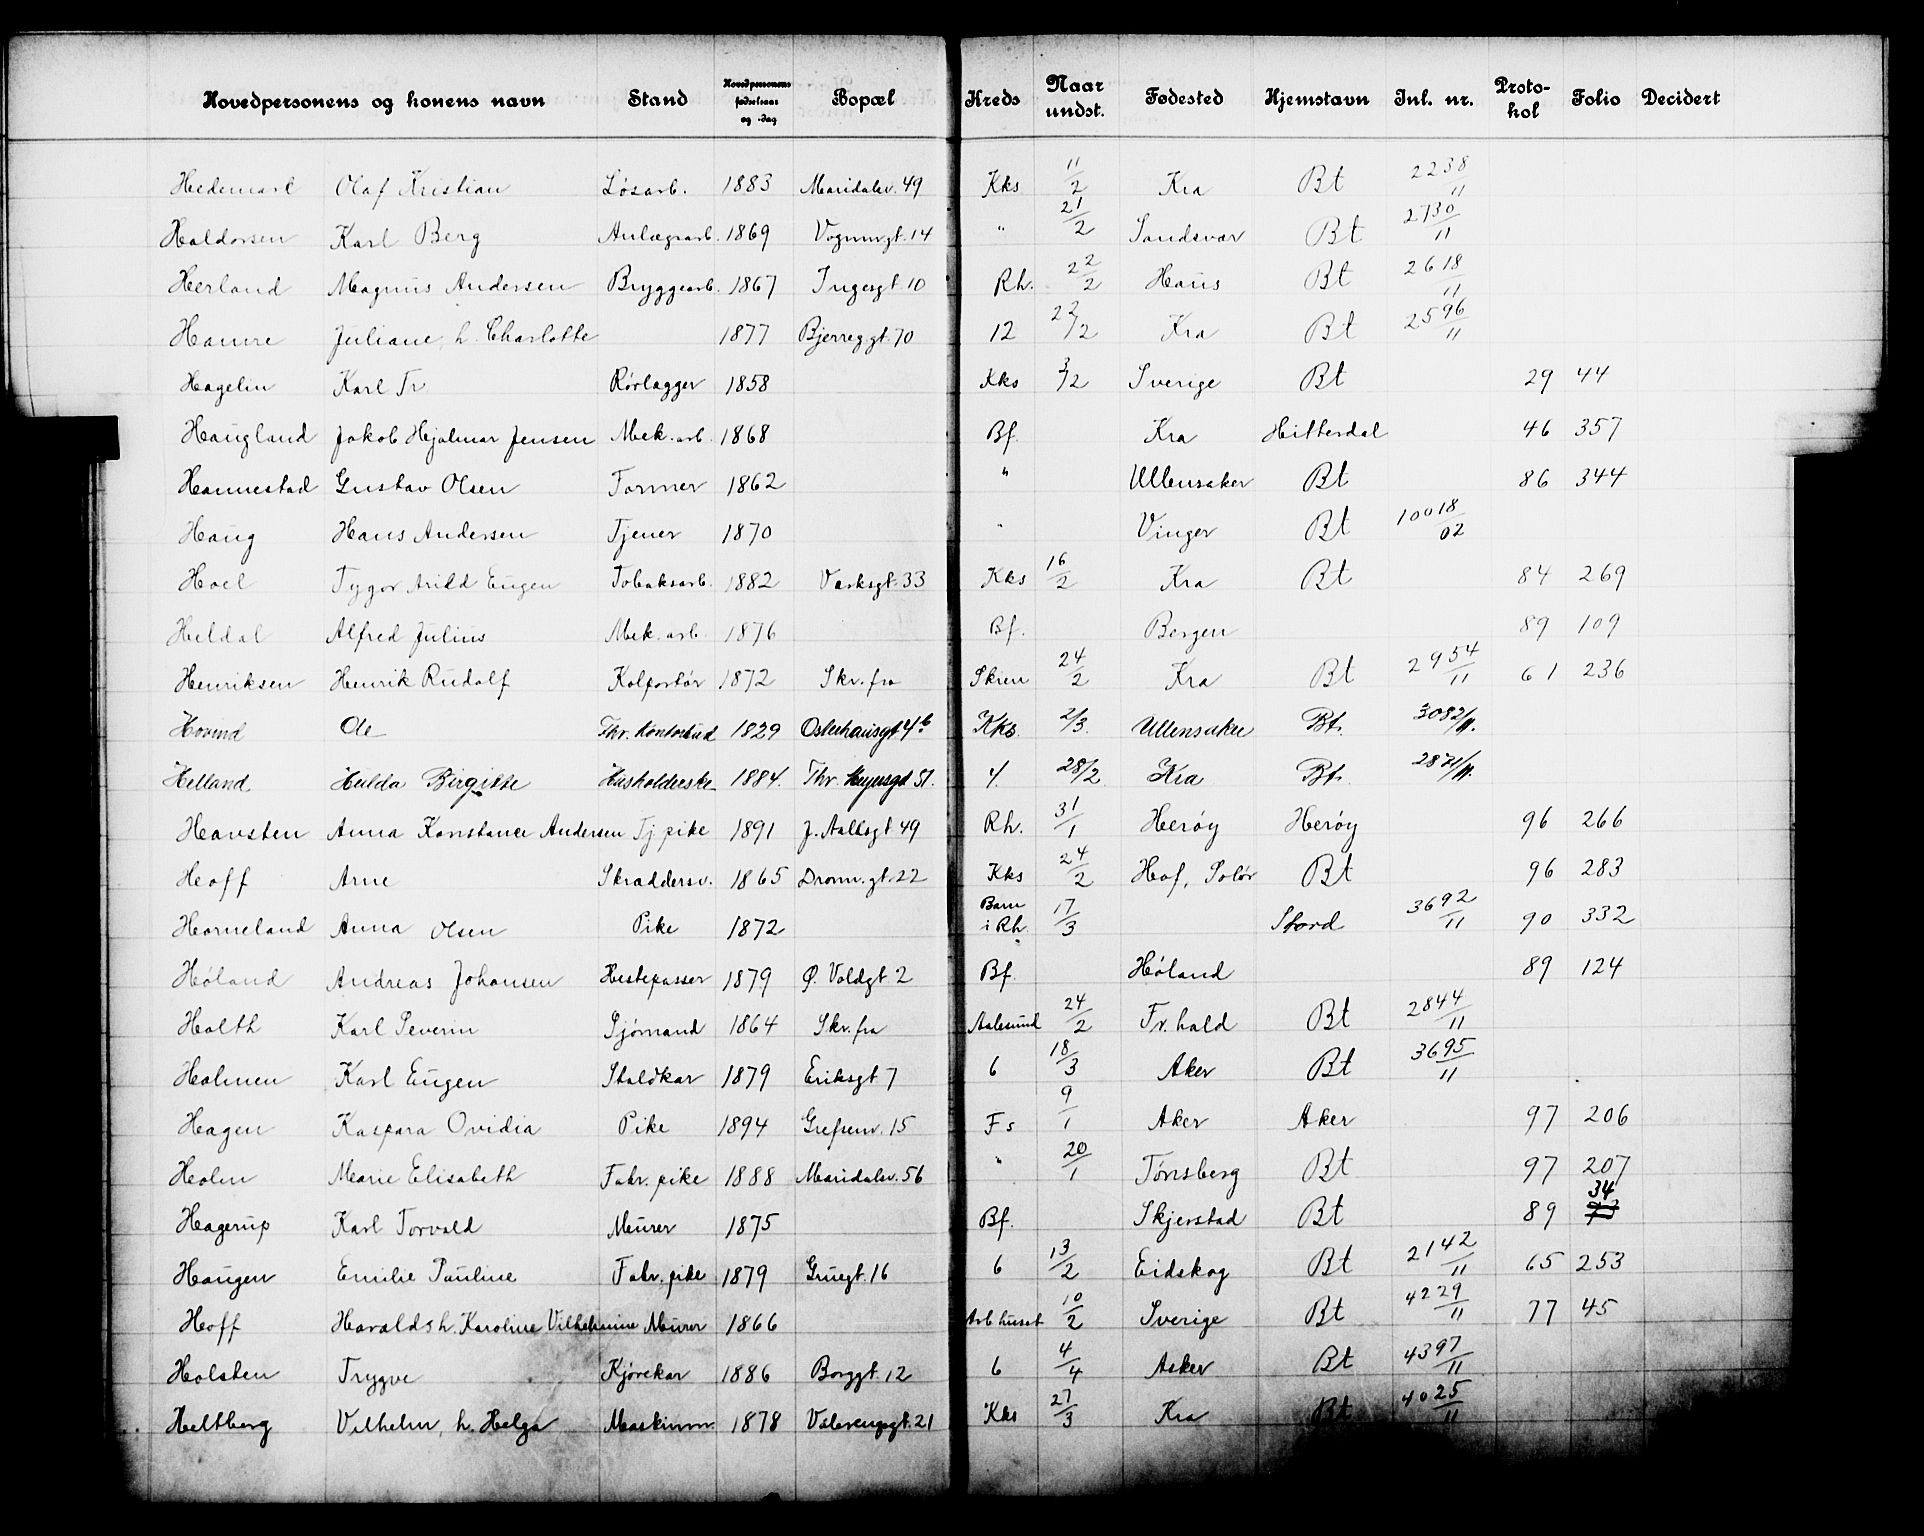 Hovedpersonens og konens navn Stand Hovedpersonens fødselsaar og -dag Bopæl Kreds Naar undst. Fødested Hjemstavn Inl. nr. Proto-kol Folio Decidert
Hedemark Olaf Kristian Løsarb. 1883 Maridalsv. 49 Kks 11/2 Kra Bt 2238/11
Haldorsen Karl Berg Anlægsarb. 1869 Vognmgt. 14 " 21/2 Sandsvær Bt 2730/11
Herland Magnus Andersen Bryggearb. 1867 Ingesgt. 10 Rh. 22/2 Haus Bt 2618/11
Hamre Juliane, h. Charlotte 1877 Bjerreggt. 70 12 22/2 Kra Bt 2596/11
Hagelin Karl Fr Rørlægger 1858 Kks 3/2 Sverige Bt 29 44
Haugland Jakob Hjalmar Jensen Mek. arb. 1868 Bf. Kra Hitterdal 46 357
Hannestad Gustav Olsen Former 1862 " Ullensaker Bt 86 344
Haug Hans Andersen Tjener 1870 " Vinger Bt 10018/02
Hoel Trygve Arild Eugen Tobaksarb. 1882 Værksgt. 33 Kks 16/2 Kra Bt 84 269
Heldal Alfred Julius Mek. arb. 1876 Bf. Bergen 89 109
Henriksen Henrik Rudolf Kolportør 1872 Skr. fra Skien 24/2 Kra Bt 2954/11 61 236
Hovind Ole Fhv. Kontorbud 1829 Osterhausgt 4b Kks 2/3. Ullensaker Bt. 3082/11.
Helland Hulda Birgitte Husholderske 1884. Thv. Meyersgd 51. 4. 28/2 Kra Bt. 2871/11.
Havsten Anna Konstance Andersen Tj pike 1891 J. Aallsgt 49 Rh. 31/1 Herøy Herøy 96 266
Hoff Arne Skræddersv. 1865 Dronn. gt. 22 Kks 24/2 Hof, Solør Bt 96 283
Horneland Anna Olsen Pike 1872 Barn i Rh. 17/3 Stord 3692/11 90 332
Høland Andreas Johansen Hestepasser 1879 Ø. Voldgt 2 Bf. Høland 89 124
Holth Karl Severin Sjømand 1864 Skr. fra Aalesund 24/2 Fr. hald Bt 2844/11
Holmen Karl Eugen Staldkar 1879 Eriksgt 7 6 18/3 Aker Bt 3695/11
Hagen Kaspara Ovidia Pike 1894 Grefsenv. 15 Fs 9/1 Aker Aker 97 206
Holm Marie Elisabeth Fabr. pike 1888 Maridalsv. 56 " 20/1 Tønsberg Bt 97 207
Hagerup Karl Torvald Murer 1875 Bf. Skjerstad Bt 89 34
Haugen Emilie Pauline Fabr. pike 1879 Gruegt. 16 6 13/2 Eidskog Bt 2142/11 65 253
Hoff Haralds h. Karoline Vilhelmine Murer 1866 Arb huset 10/2 Sverige Bt 4229/11 77 45
Holsten Trygve Kjørekar 1886 Borggt. 12 6 4/4 Asker Bt 4397/11
Heltberg Vilhelm, h. Helga Maskinm. 1878 Vålerengsgt. 21 Kks 27/3 Kra Bt 4025/11